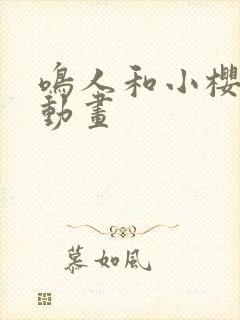 鳴人和小櫻
動畫
慕如風